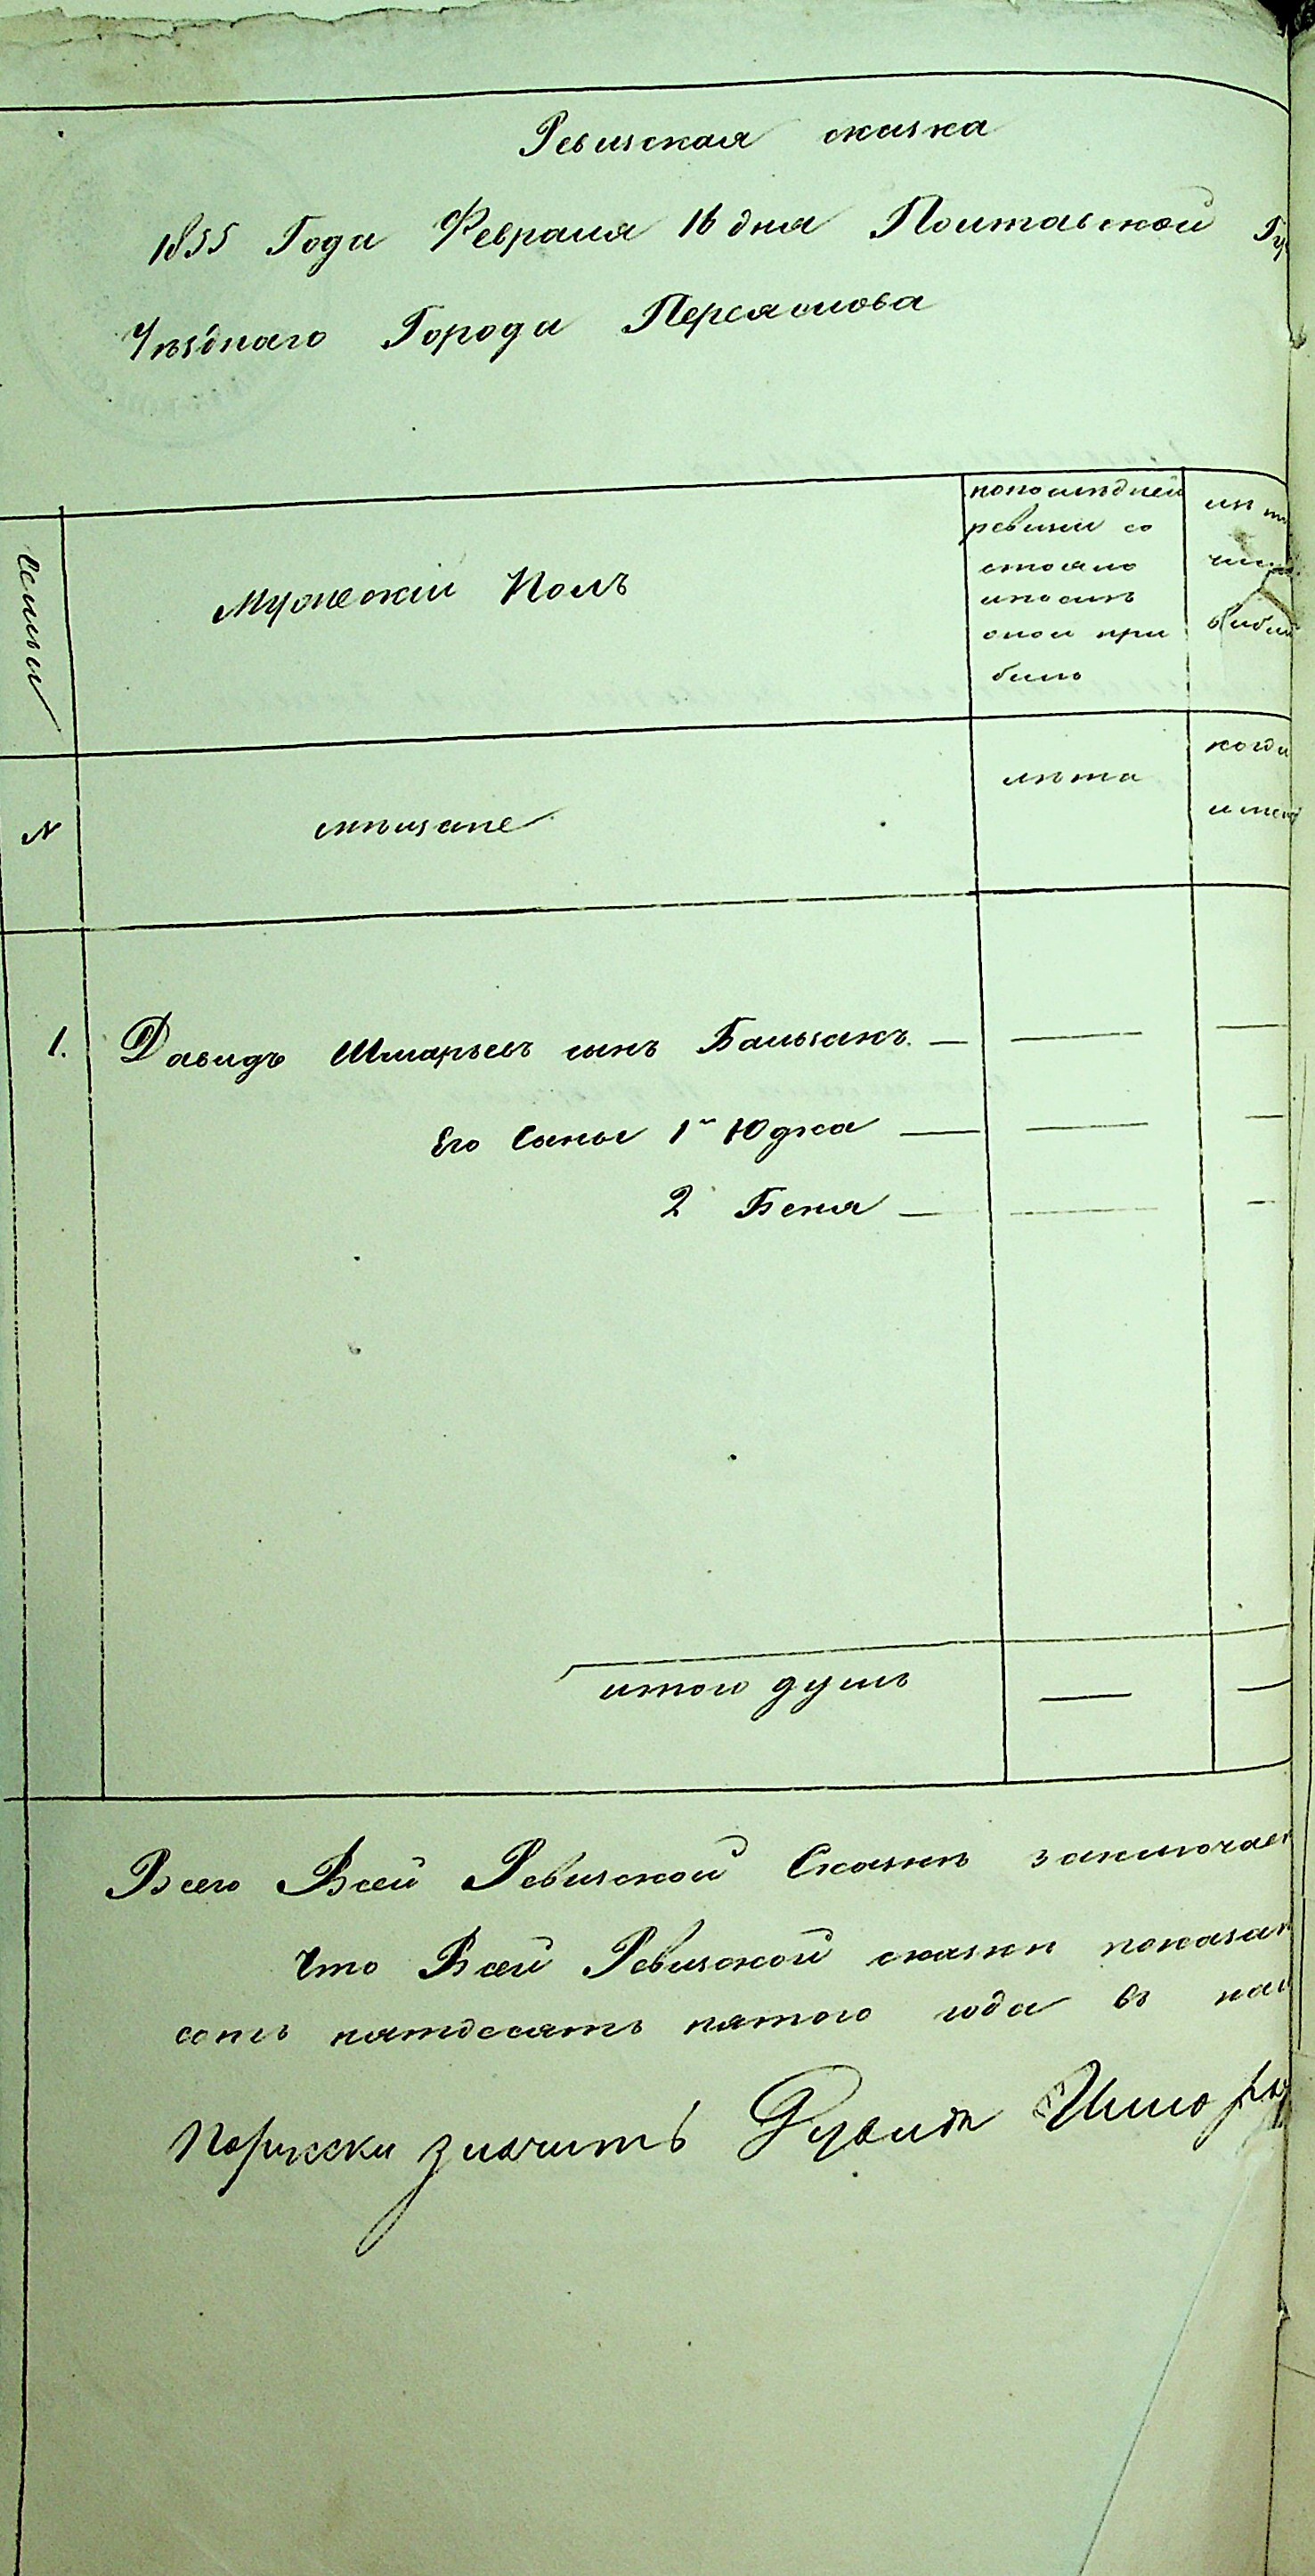 Ревизская сказка
1855 Года Февраля 16 дня Полтавской Гу
Уѣзднаго Города Переяслова
Семьи
Мужескій Полъ
попослѣдней
ревизіи со
стояло
ипослѣ
оной при
было
изъ
числа
выбыло
N
мѣщане
лѣта
когда
имено
1. Давидъ Шмарьевъ сынъ Бальзакъ — — —
Его Сыны 1й Юдка — — —
2 Беня — — —
итого душъ — —
Всего Всей Ревизской Сказкѣ заключает
Что Всей Ревизской сказки показан
сотъ пятдесятъ пятого года въ
значитъ